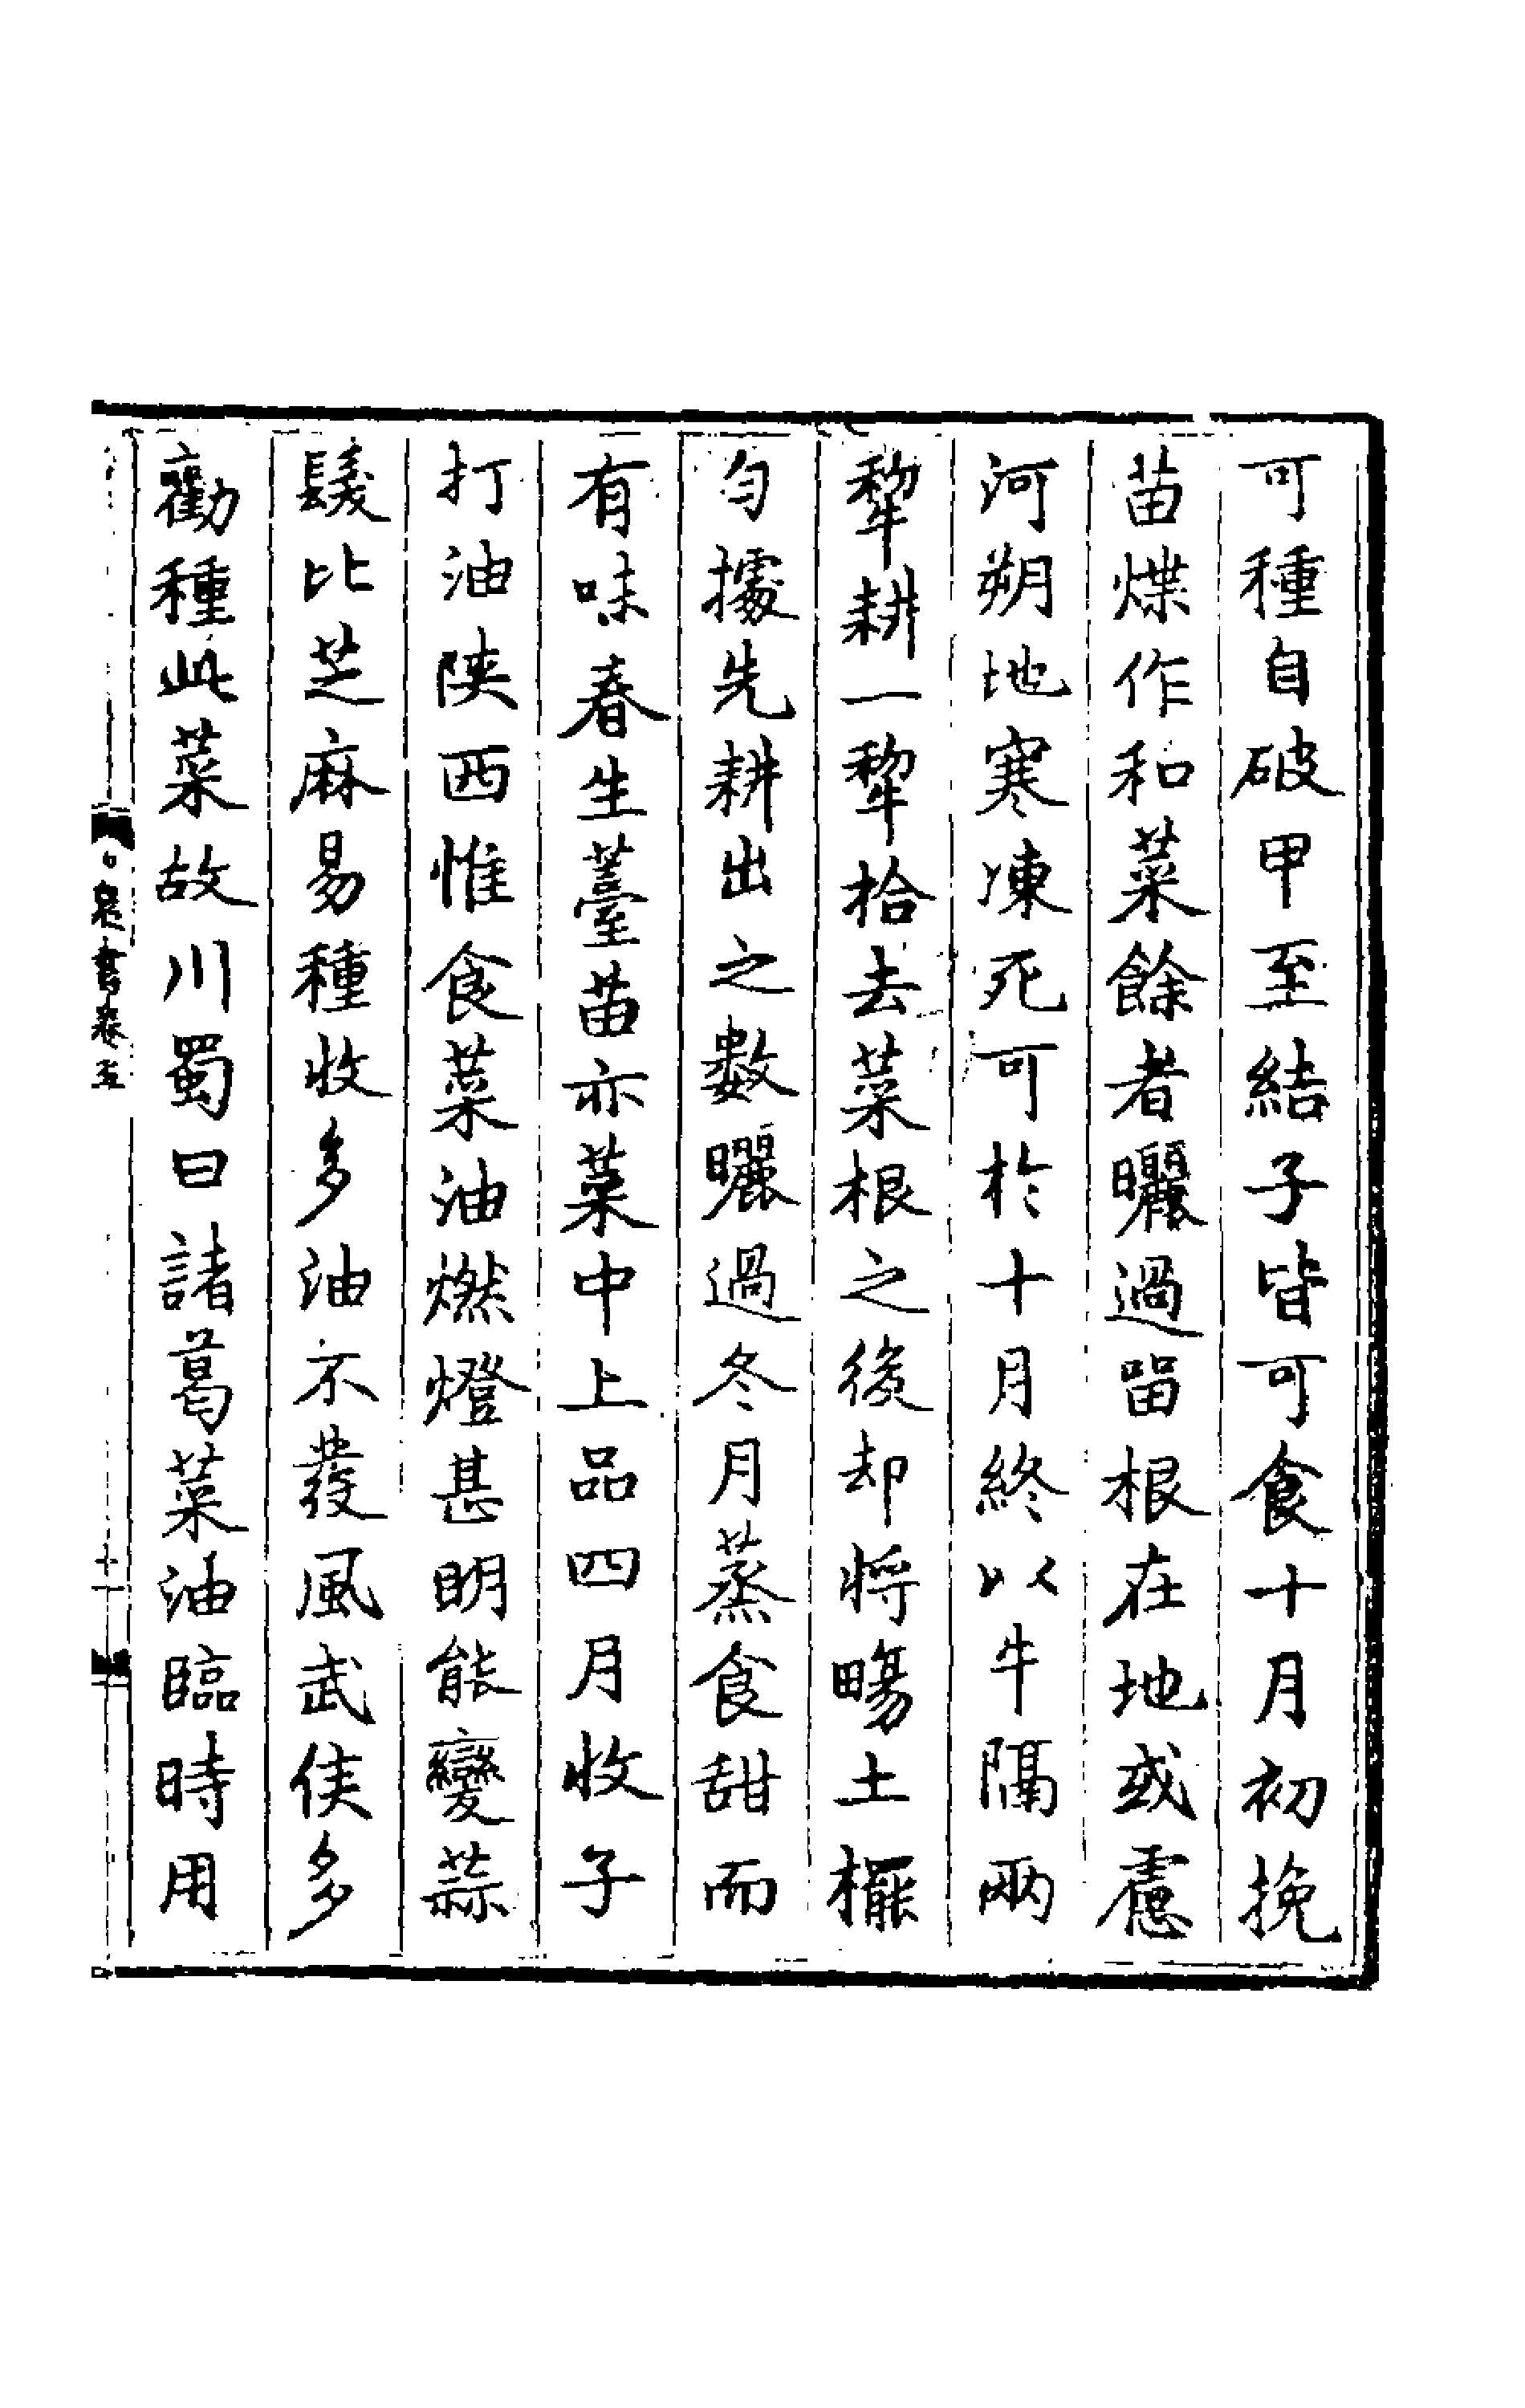 可種自破甲至結子皆可食十月初挽
苗煠作和菜餘者曬過畱根在地或慮
河朔地寒凍死可於十月終以牛隔兩
犂耕一犂拾去菜根之後却將暘土欋
匀據先耕出之數曬過冬月蒸食甜而
有味春生薹苗亦菜中上品四月收子
打油陝西惟食菜油燃燈甚明能變蒜
髮比芝麻易種收多油不發風武侯多
勸種此菜故川蜀曰諸葛菜油臨時用
農書卷五
十一